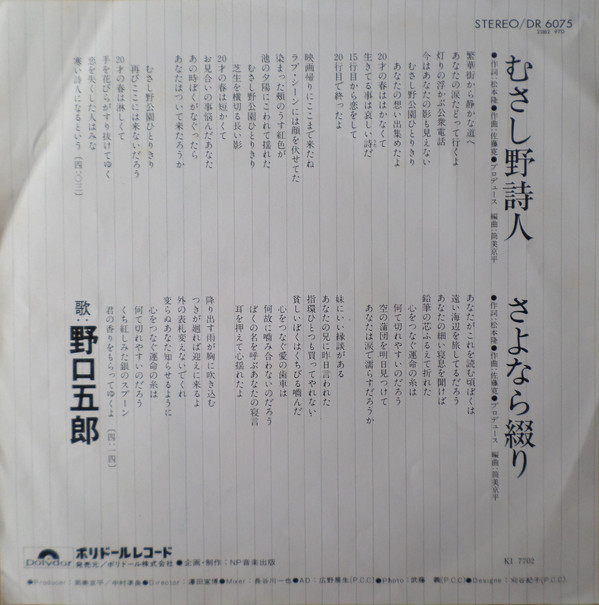 STEREO/DR 6075
むさし野詩人
●作詞:松本隆●作曲:佐藤寛●プロデュース 編曲:筒美京平
繁華街から静かな道へ
あなたの涙たどって行くよ
灯りの浮かぶ公衆電話
今はあなたの影も見えない
むさし野公園ひとりきり
あなたの想い出集めたよ
20才の春ははかなくて
生きてる事は哀しい詩だ
15行目から恋をして
20行目で終ったよ
映画帰りにここまで来たね
ラブ・シーンには顔を伏せてた
染まった頬のうす紅色が
池の夕陽にこわれて揺れた
むさし野公園ひとりきり
芝生を横切る長い影
20才の春は短かくて
お見合いの事悩んだあなた
あの時ぼくがなぐったら
あなたはついて来ただろうか
むさし野公園ひとりきり
再びここには来ないだろう
20才の春は淋しくて
手を花びらがすり抜けてゆく
恋を失くした人はみな
寒い詩人になるという [四・〇三]
さよなら綴り
●作詞:松本隆●作曲:佐藤寛●プロデュース 編曲:筒美京平
あなたがこれを読む頃ぼくは
遠い海辺を旅してるだろう
あなたの細い寝息を聞けば
鉛筆の芯ふるえて折れた
心をつなぐ運命の糸は
何て切れやすいのだろう
空の蒲団を明日見つけて
あなたは涙で濡らすだろうか
妹にいい縁談がある
あなたの兄に昨日言われた
指環ひとつも買ってやれない
貧しいぼくはくちびる噛んだ
心をつなぐ愛の歯車は
何故に噛み合わないのだろう
ぼくの名を呼ぶあなたの寝言
耳を押えて心揺れたよ
降り出す雨が胸に吹き込む
つきが廻れば迎えに来るよ
外の表札変えないでくれ
変らぬあなた知らせるように
心をつなぐ運命の糸は
何て切れやすいのだろう
くち紅しみた銀のスプーン
君の香りをもらってゆくよ [四・一四]
歌:野口五郎
polydor
ポリドールレコード
発売元/ポリドール株式会社 ●企画・制作:NP音楽出版
KI 7702
●Producer:筒美京平/中村淳良●Director:澤田宣博●Mixer:長谷川一也●AD:広野展生(P.C.C)●Photo:武藤 義(P.C.C)●Designe:刈谷紀子(P.C.C)